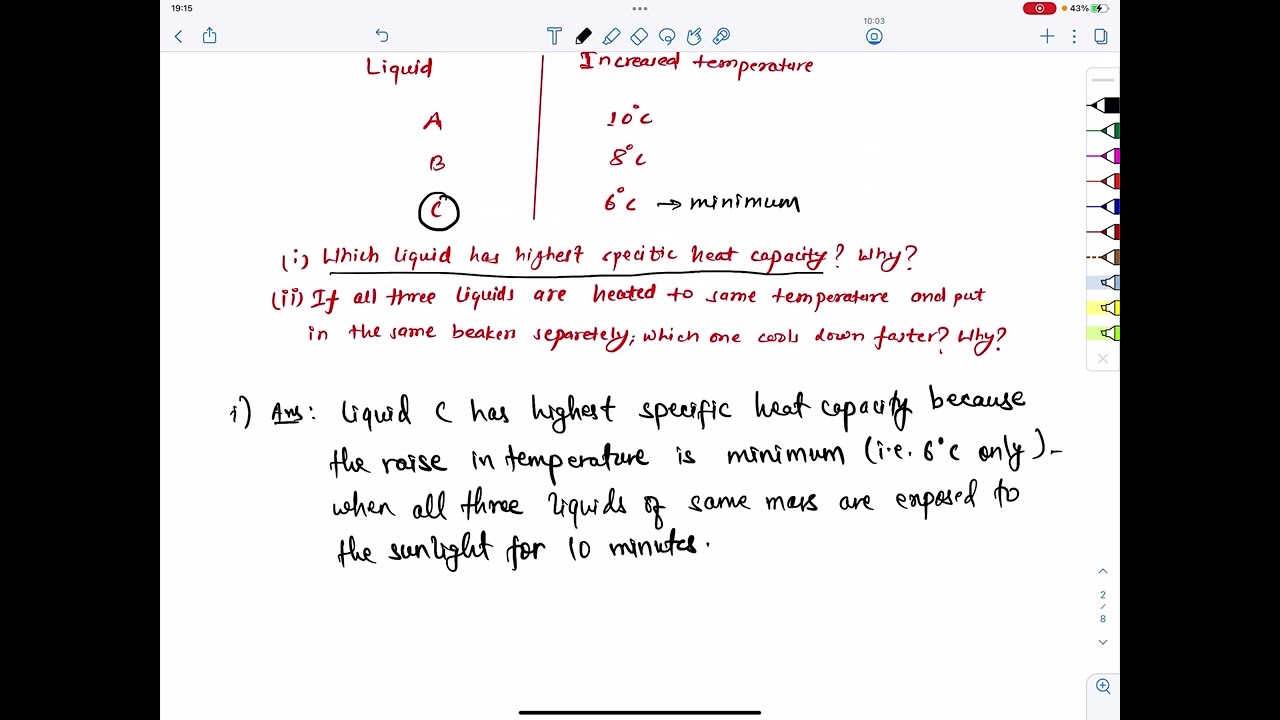 19:15
43%
10:03
Liquid Increased temperature
A 10°C
B 8°C
C 6°C → minimum
(i) Which liquid has highest specific heat capacity? Why?
(ii) If all three liquids are heated to same temperature and put
in the same beakers separetely, which one cools down faster? Why?
i) Ans: Liquid C has highest specific heat capacity because
the raise in temperature is minimum (i.e. 6°C only).
when all three liquids of same mass are exposed to
the sunlight for 10 minutes.
2
/
8